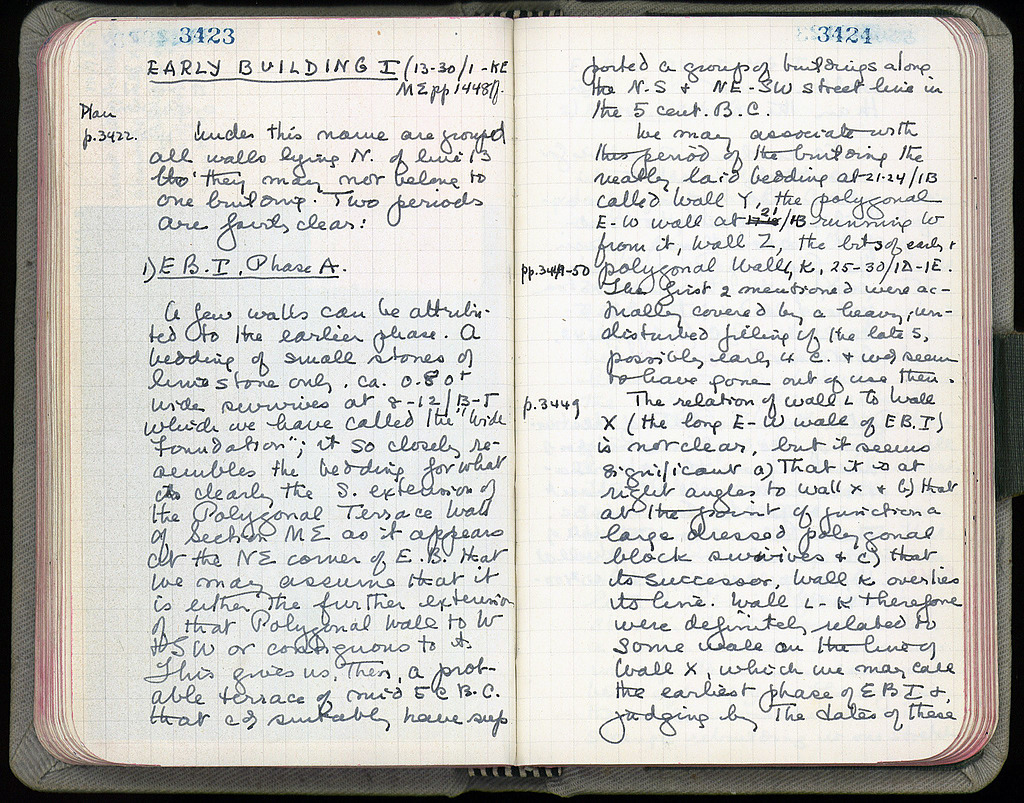 3423
EARLY BUILDING I (13-30/1-KE
ME pp 1448ff.
Plan
p.3422.
Under this name are grouped
all walls lying N. of line 13
tho' they may not belong to
one building. Two periods
are fairly clear:
1) E B. I, Phase A.
A few walls can be attribu-
ted to the earlier phase. A
bedding of small stones of
limestone only, ca. 0.80+
wide survives at 8-12/B-J
which we have called the "wide
foundation"; it so closely re-
sembles the bedding for what
is clearly the S. extension of
the Polygonal Terrace Wall
of Section ME as it appears
at the NE corner of E.B. that
we may assume that it
is either the further extension
of that Polygonal Wall to W
& SW or contiguous to it.
This gives us, then, a prob-
able terrace of mid 5 c B.C.
that cd suitably have sup
3424
ported a group of buildings along
the N-S & NE-SW street line in
the 5 cent. B.C.
We may associate with
this period of the building the
neatly laid bedding at 21-24/1B
called Wall Y, the polygonal
E-W wall at 21/1B running W
from it, Wall Z, the bits of early
polygonal Wall, K, 25-30/1D-1E.
pp.3449-50
The first 2 mentioned were ac-
tually covered by a heavy, un-
disturbed filling of the late 5,
possibly early 4 c. & wd seem
to have gone out of use then.
p.3449
The relation of wall L to Wall
X (the long E-W wall of EB.I)
is not clear, but it seems
significant a) That it is at
right angles to wall X & b) that
at the point of junction a
large dressed polygonal
block survives & c) that
its successor, Wall K overlies
its line. Wall L-K therefore
were definitely related to
some wall on the line of
Wall X, which we may call
the earliest phase of EB I &,
judging by the dates of these